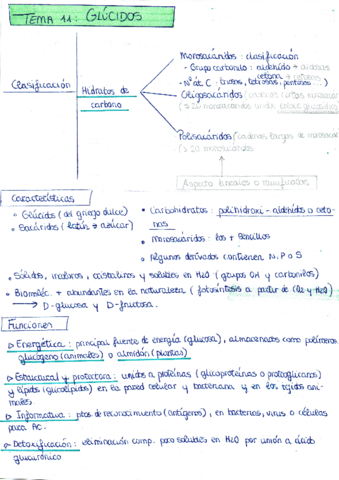 TEMA 11: GLÚCIDOS
Monosacáridos: clasificación
- Grupo carbonilo: aldehído → aldosas
cetona → cetosas
- Nº át. C: triosas, tetrosas, pentosas ...)
Clasificación
Hidratos de
carbono
Oligosacáridos (cadenas cortas
(≤ 20 monosacáridos unidos enlace glucosídico
Polisacáridos (cadenas largas de monosac
(> 20 monosacáridos
Aspecto lineales o ramificados
Características
• Glúcidos (del griego dulce)
• Sacáridos (latín → azúcar)
• Carbohidratos: polihidroxi-aldehídos o ceto-
nas
• Monosacáridos: los + sencillos
• Algunos derivados contienen N, P o S
• Sólidos, incoloros, cristalinos y solubles en H2O (grupos OH y carbonilos)
• Biomoléc. + abundantes en la naturaleza (fotosíntesis a partir de CO2 y H2O)
→ D-glucosa y D-fructosa.
Funciones
▷ Energética: principal fuente de energía (glucosa), almacenados como polímeros
glucógeno (animales) o almidón (plantas)
▷ Estructural y protectora: unidos a proteínas (glicoproteínas o proteoglicanos)
y lípidos (glicolípidos) en la pared celular y bacteriana y en los tejidos ani-
males
▷ Informativa: ptos de reconocimiento (antígenos), en bacterias, virus o células
para AC.
Detoxificación: eliminación comp. poco solubles en H2O por unión a ácido
glucurónico